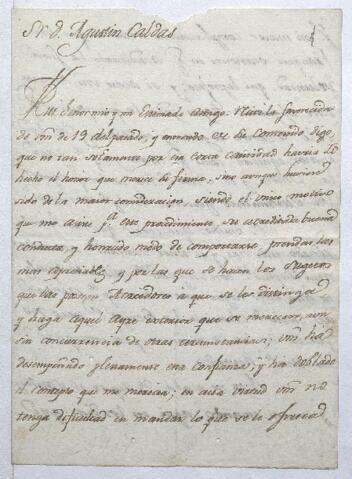 Sr. D. Agustin Caldas
Mui Señor mio y mi Estimado Amigo: Recivi la favorecida
de vm. de 19 del pasado, y a su contenido digo,
que no tan solamente por tan corta cantidad havria
hecho el honor que merece su firma, sino aunque huviera
sido de la maior consideracion, siendo el unico motivo
que me asiste pa. este procedimiento su acreditada buena
conducta y honrado modo de comportarse, prendas las
mas apreciables, y por las que se hacen los sugetos
que las poseen Acreedores a que se les distinga
y haga aquel aprecio que se merecen, aun
sin concurrencia de otras circunstancias; vm. ha
desempeñado plenamente esta confianza, y ha doblado
el concepto que me merecia; en cuia virtud vm. no
tenga dificultad en mandar lo que se le ofresca